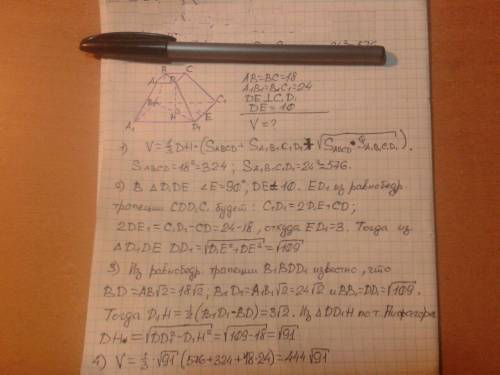 24²=576
B C
A D
AB=BC=18
A₁B₁=B₁C₁=24
DE⊥C₁D₁
DE=10
V=?
B₁ C₁
H E
A₁ D₁
1) V=⅓DH·(S_ABCD+S_A₁B₁C₁D₁+√(S_ABCD·S_A₁B₁C₁D₁)).
S_ABCD=18²=324; S_A₁B₁C₁D₁=24²=576.
2) В ΔD₁DE ∠E=90°, DE=10. ED₁ из равнобедр.
трапеции CDD₁C₁ будет: C₁D₁=2D₁E+CD;
2DE₁=C₁D₁-CD=24-18, откуда ED₁=3. Тогда из
ΔD₁DE DD₁=√(D₁E²+DE²)=√109
3) Из равнобедр. трапеции B₁BDD₁ известно, что
BD=AB√2=18√2, B₁D₁=A₁B₁√2=24√2 и BB₁=DD₁=√109.
Тогда D₁H=½(B₁D₁-BD)=3√2. Из ΔDD₁H по т. Пифагора
DH=√(DD₁²-D₁H²)=√(109-18)=√91
4) V=⅓·√91(576+324+18·24)=444√91